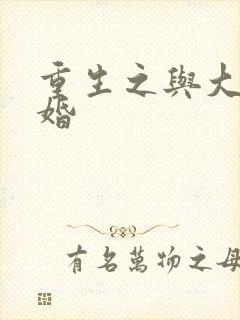 重生之與大
婚
有名萬物之母